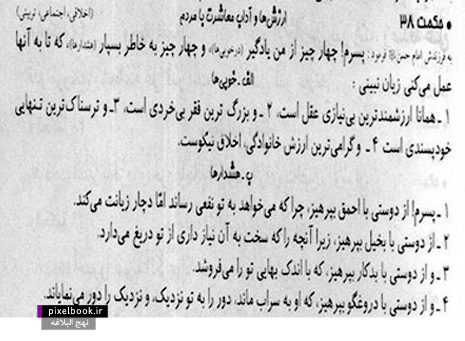 • حکمت ۳۸ ارزش‌ها و آداب معاشرت با مردم (اخلاقی، اجتماعی، تربیتی)
به فرزندش امام حسن فرمود: پسرم! چهار چیز از من یادگیر (در خوبی‌ها)، و چهار چیز به خاطر بسپار (هشدارها)، که تا به آنها
عمل می‌کنی زیان نبینی:
الف ـ خوبی‌ها
۱ ـ همانا ارزشمندترین بی‌نیازی عقل است، ۲ ـ و بزرگ ترین فقر بی‌خردی است، ۳ ـ و ترسناک‌ترین تنهایی
خودپسندی است ۴ ـ و گرامی‌ترین ارزش خانوادگی، اخلاق نیکوست.
ب ـ هشدارها
۱ ـ پسرم! از دوستی با احمق بپرهیز، چرا که می‌خواهد به تو نفعی رساند امّا دچار زیانت می‌کند.
۲ ـ از دوستی با بخیل بپرهیز، زیرا آنچه را که سخت به آن نیاز داری از تو دریغ می‌دارد.
۳ ـ و از دوستی با بدکار بپرهیز، که با اندک بهایی تو را می‌فروشد.
۴ ـ و از دوستی با دروغگو بپرهیز، که او به سراب ماند، دور را به تو نزدیک، و نزدیک را دور می‌نمایاند.
pixelbook.ir
نهج البلاغه